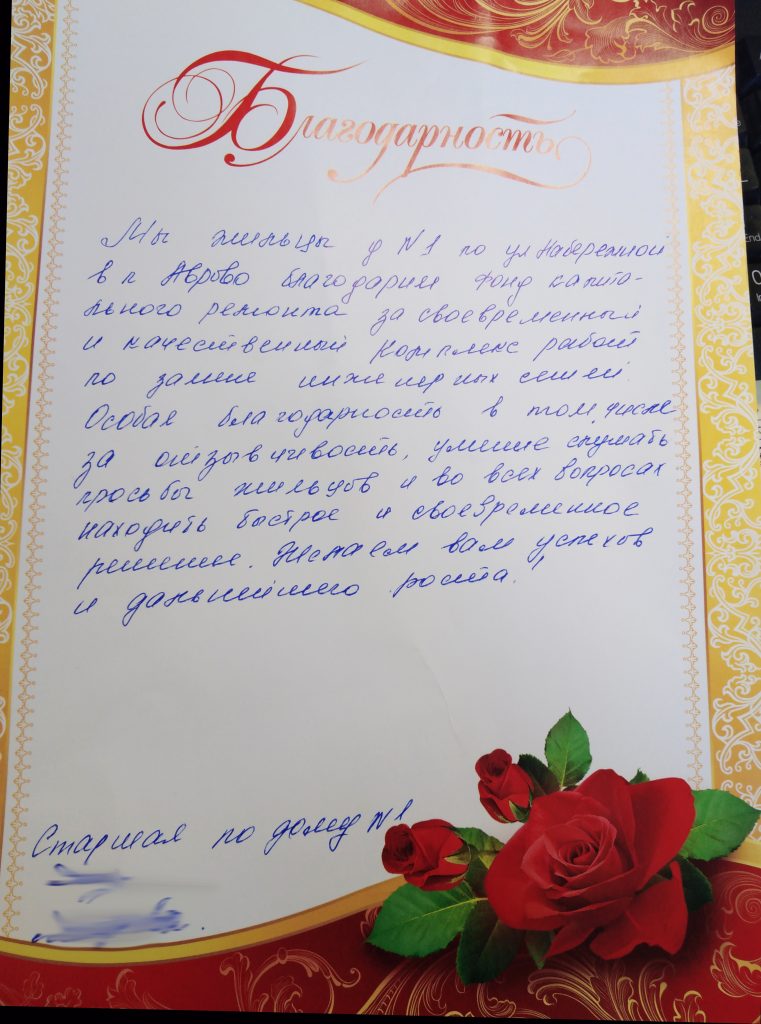 Благодарность
Мы жильцы д №1 по ул Набережной
в п Аврово благодарим Фонд капита-
льного ремонта за своевременный
и качественный комплекс работ
по замене инженерных сетей.
Особая благодарность в том числе
за отзывчивость, умение слушать
просьбы жильцов и во всех вопросах
находить быстрое и своевременное
решение. Желаем вам успехов
и дальнейшего роста!
Старшая по дому №1